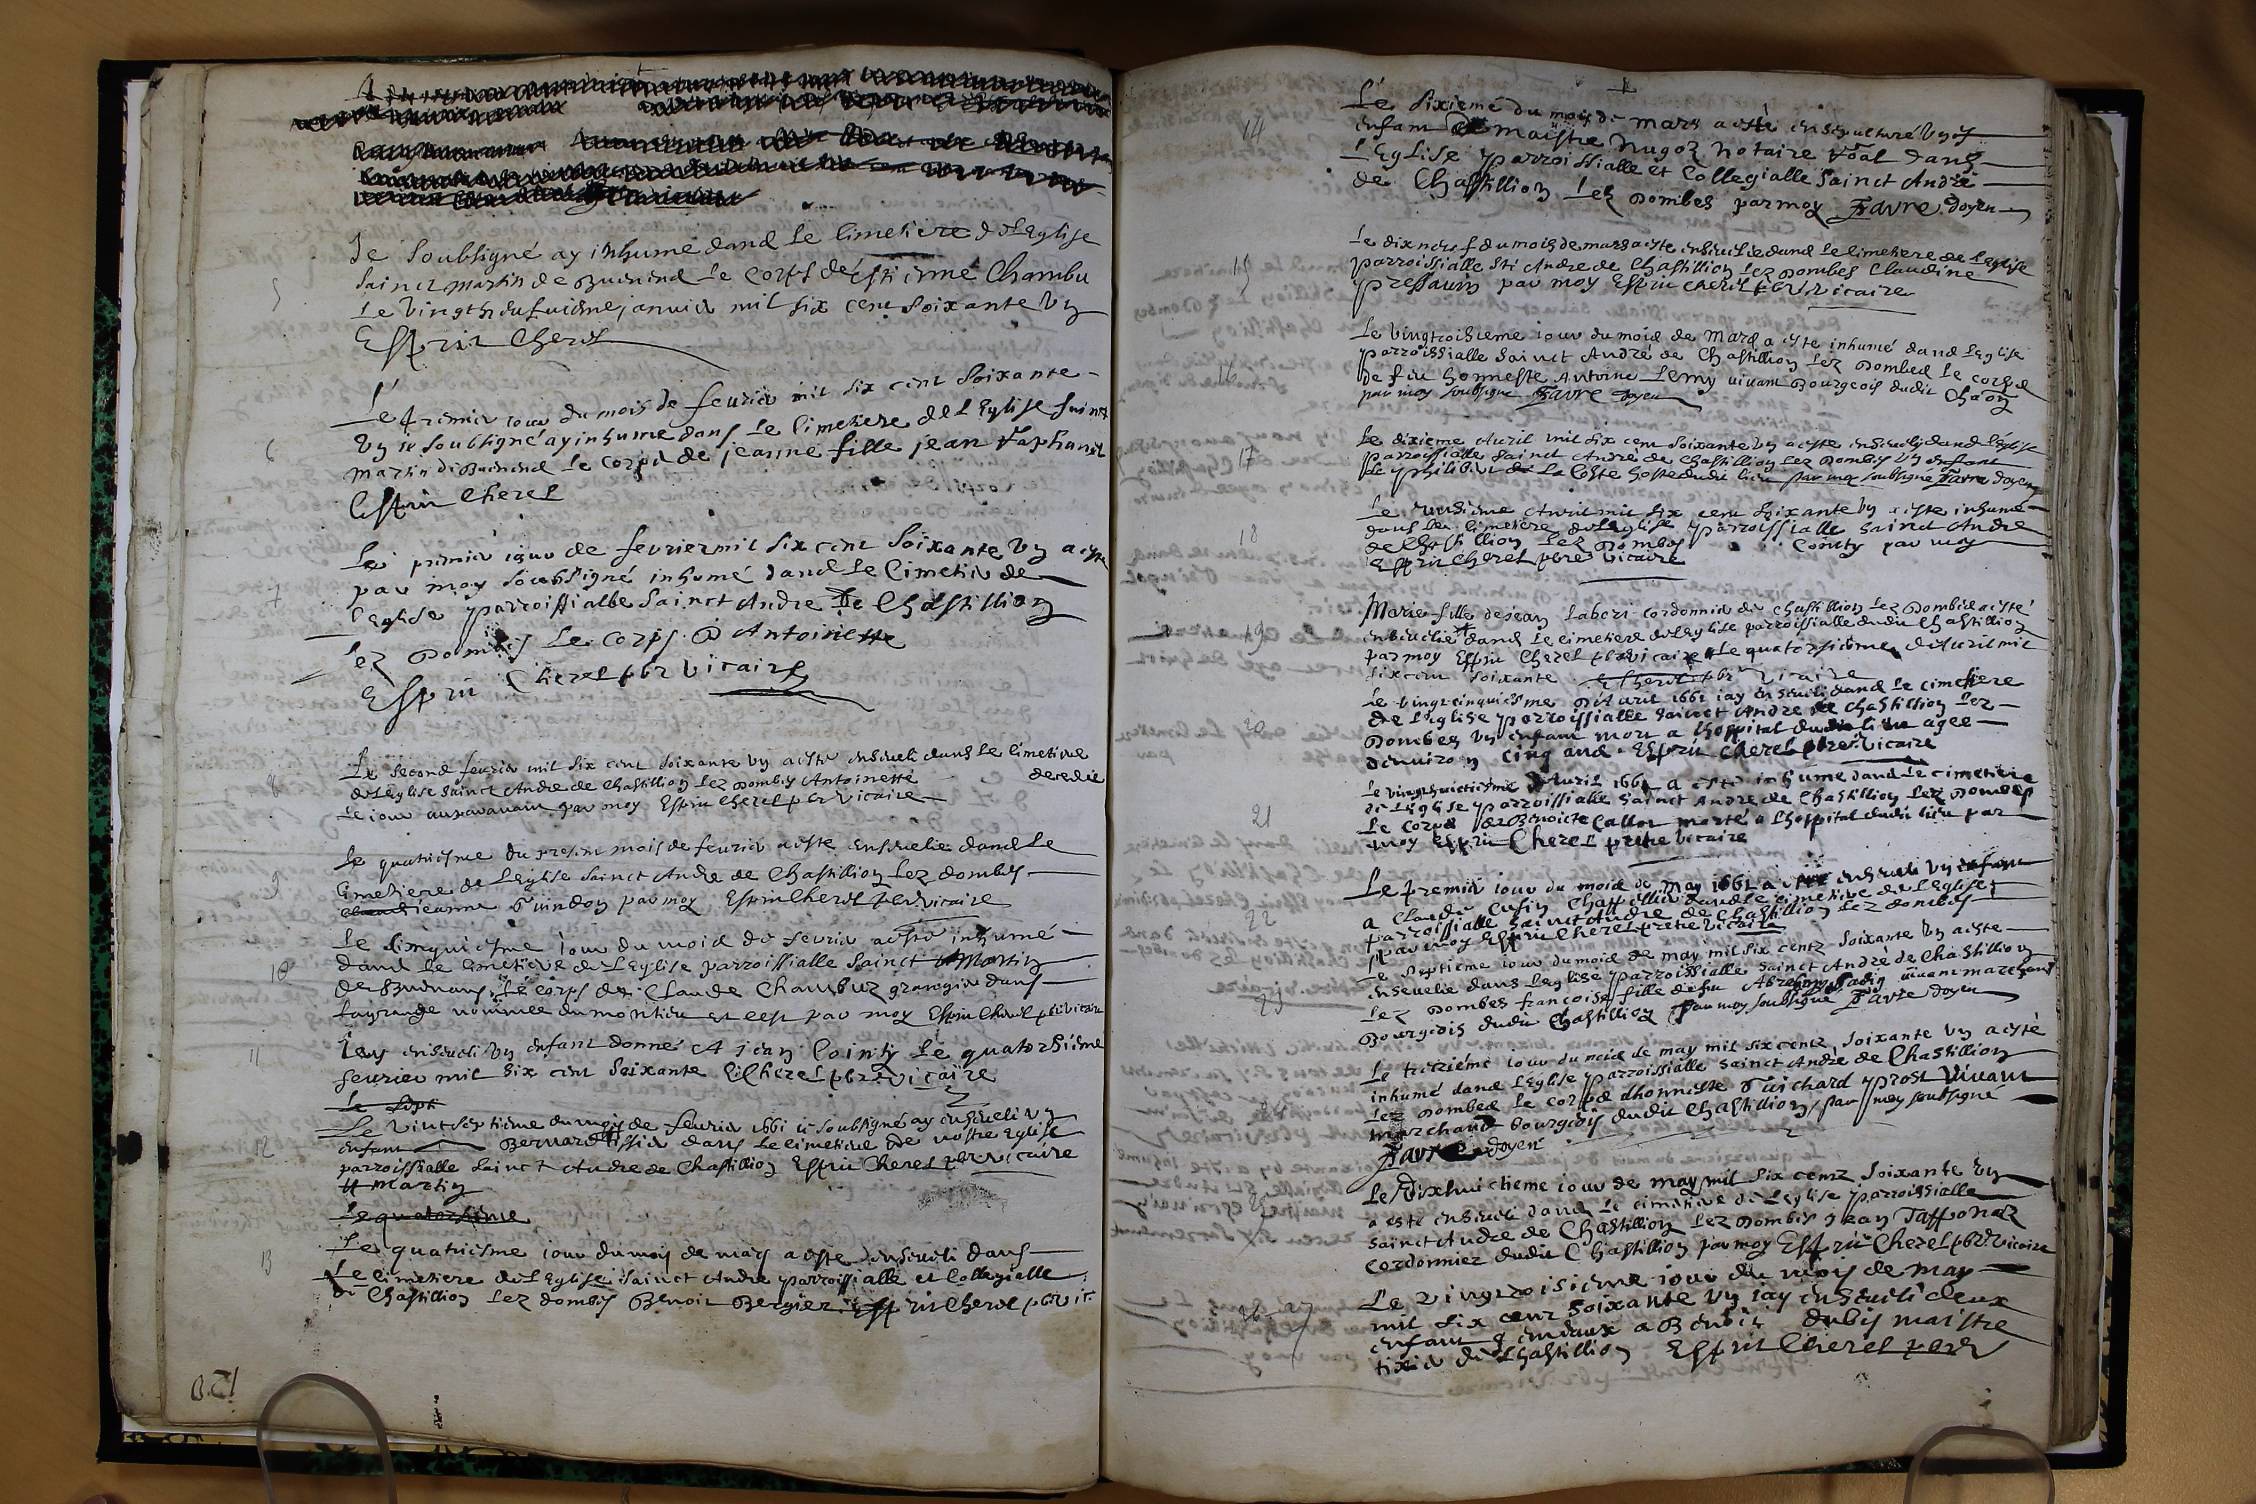 5
Je Soubsigné ay inhumé dans le Cimetiere de l'Eglise
Sainct Martin de Buenens le Corps de Estienne Chambu
Le Vingt huictiesme janvier mil six cent soixante Un
Esprit Cherel
6
Le premier iour du mois de fevrier mil six cent Soixante
Un ie soubsigné ay inhume dans le Cimetiere de l'Eglise Sainct
Martin de Buenens le corps de jeanne fille jean
Esprit Cherel
7
Le premier iour de fevrier mil six cent soixante Un a este
par moy soubsigné inhumé dans le Cimetier de
l'Eglise parroissialle Sainct Andre De Chastillion
lez Dombes le Corps D Antoinette
Esprit Cherel pbr Vicaire
8
Le second fevrier mil six cent soixante un a esté enseveli dans le Cimetiere
de l'eglise Sainct Andre de Chastillion lez Dombes Antoinette decedee
le iour auparavant par moy Esprit Cherel pbr Vicaire
9
Le quatriesme du present mois de fevrier a este ensevelie dans Le
Cimetiere de l'Eglise Sainct Andre de Chastillion lez dombes
ieanne Guindon par moy Esprit Cherel pbr vicaire
10
Le Cinquiesme iour du mois de fevrier a esté inhumé
dans le Cimetiere de l'Eglise parroissialle Sainct Martin
de Buenens le corps de Claude Chambuz grangier dans
la grange nommee du montieu et cest par moy Esprit Cherel pbr vicaire
11
Iay enseveli Un enfant donné A jean Cointy le quatorsiesme
fevrier mil six cent soixante E Cherel pbre vicaire
Le sept
12
Le Vint septieme du mois de fevrier 1661 ie soubsigné ay enseveli un
enfant Bernard Tissier dans le cimetiere de nostre Eglise
parroissialle Sainct Andre de Chastillion Esprit Cherel pbr vicaire
martin
Le quatorsieme
13
Le quatriesme iour du mois de mars a este enseveli dans
Le Cimetiere de l'Eglise Sainct Andre parroissialle et Collegialle
de Chastillion lez dombes Benoit Bergier Esprit Cherel pbr vic
120
14
Le sixieme du mois de mars a esté ensepulturé Un
enfant de maistre Nugoz Notaire royal dans
l'Eglise parroissialle et Collegialle Sainct André
de Chastillion lez Dombes par moy Favre doyen
15
Le dix neuf du mois de mars a este ensevelie dans le Cimetiere de l'eglise
parroissialle St Andre de Chastillion lez Dombes Claudine
pressavin par moy Esprit Cherel pbr vicaire
16
Le Vingtroisieme iour du mois de Mars a este inhumé dans l'eglise
parroissialle Sainct André de Chastillion lez Dombes le corps
de feu honneste Antoine Lemy vivant Bourgeois dudit Chaon
par moy soubsigne Favre doyen
17
Le dixieme Avril mil six cent soixante Un a este enseveli dans l'eglise
parroissialle Sainct André de Chastillion lez Dombes Un enfant
de philibert de La Coste hoste dudit lieu par moy soubsigné Favre doyen
18
Le Avril mil six cent soixante Un a este inhumé
dans le Cimetiere de l'eglise parroissialle Sainct Andre
de Chastillion lez Dombes Cointy par moy
Esprit Cherel pbre Vicaire
19
Marie fille de jean Laberi cordonnier de Chastillion lez Dombes a esté
ensevelie dans le cimetiere de l'Eglise parroissialle dudit Chastillion
par moy Esprit Cherel pbr vicaire Le quatorsiesme d'Avril mil
six cent soixante E Cherel pbr Vicaire
20
Le vingt cinquiesme d'Avril 1661 iay enseveli dans le cimetiere
de l'eglise parroissialle Sainct Andre de Chastillion lez
Dombes un enfant mort a l'hospital dudit lieu agee
d'environ cinq ans Esprit Cherel pbre vicaire
21
Le vingt huictiesme d'Avril 1661 a esté inhume dans le cimetiere
de l'Eglise parroissialle Sainct Andre de Chastillion lez Dombes
le corps de Benoicte Callot morte a l'hospital dudit lieu par
moy Esprit Cherel pretre vicaire
22
Le premier iour du mois de may 1661 a esté enseveli un enfant
a Claude Cusin Chappellier dans le cimetiere de l'Eglise
parroissialle Sainct Andre de Chastillion lez dombes
par moy Esprit Cherel pretre vicaire
23
Le septieme iour du mois de may mil six centz soixante Un a este
ensevelie dans l'eglise parroissialle Sainct André de Chastillion
lez Dombes francoise fille de feu Abraham vivant marchand
Bourgeois dudit Chastillion par moy soubsigne Favre doyen
24
Le treizieme iour du mois de may mil six centz soixante un a esté
inhumé dans l'Eglise parroissialle Sainct Andre de Chastillion
lez Dombes le corps d'honneste Guichard prost Vivant
marchand bourgeois dudit Chastillion, par moy soubsigne
Favre doyen
25
Le dixhuictieme iour de may mil six centz soixante un
a este enseveli dans le cimetiere de l'eglise parroissialle
Sainct Andre de Chastillion lez Dombes jean Tapponet
Cordonnier dudit Chastillion par moy Esprit Cherel pbr Vicaire
26 27
Le vingtroisieme iour du mois de may
mil six cent soixante Un iay enseveli deux
enfant gemeaux a Benoit dubis maistre
tixier de Chastillion Esprit Cherel pbr